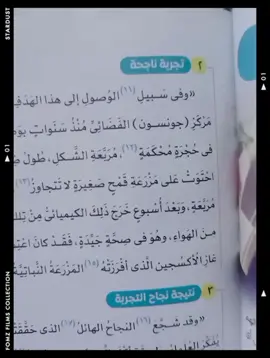 STARDUST
٢ تجربة ناجحة
«وفى سَبيلِ (١١) الوُصولِ إلى هذا الهَدَفِ
مَرْكَزِ (جونسون) الفَضَائىِّ مُنْذُ سَنَواتٍ
فى حُجْرَةٍ مُحْكَمَةٍ (١٢)، مُرَبَّعَةِ الشَّكلِ، طُولُ
احْتَوَتْ عَلى مَزْرَعَةِ قَمْحٍ صَغِيرَةٍ لا تَتَجاوَزُ (١٣)
مُرَبَّعَةٍ، وَبَعْدَ أُسْبوعٍ خَرَجَ ذَلِكَ الكيميائىُّ مِنْ
مِنَ الهَواءِ، وهُوَ فى صِحَّةٍ جَيِّدَةٍ، فَقَدْ كانَ
غَازِ الأُكْسجينِ الَّذى أَفْرَزَتْهُ (١٥) المَزْرَعَةُ النَّباتِيَّةُ
٣ نتيجة نجاح التجربة
«وقد شَجَّعَ (١٦) النَّجاحُ الهائلُ (١٧) الذى حَقَّقَتْهُ
FOMZ FILMS COLLECTION